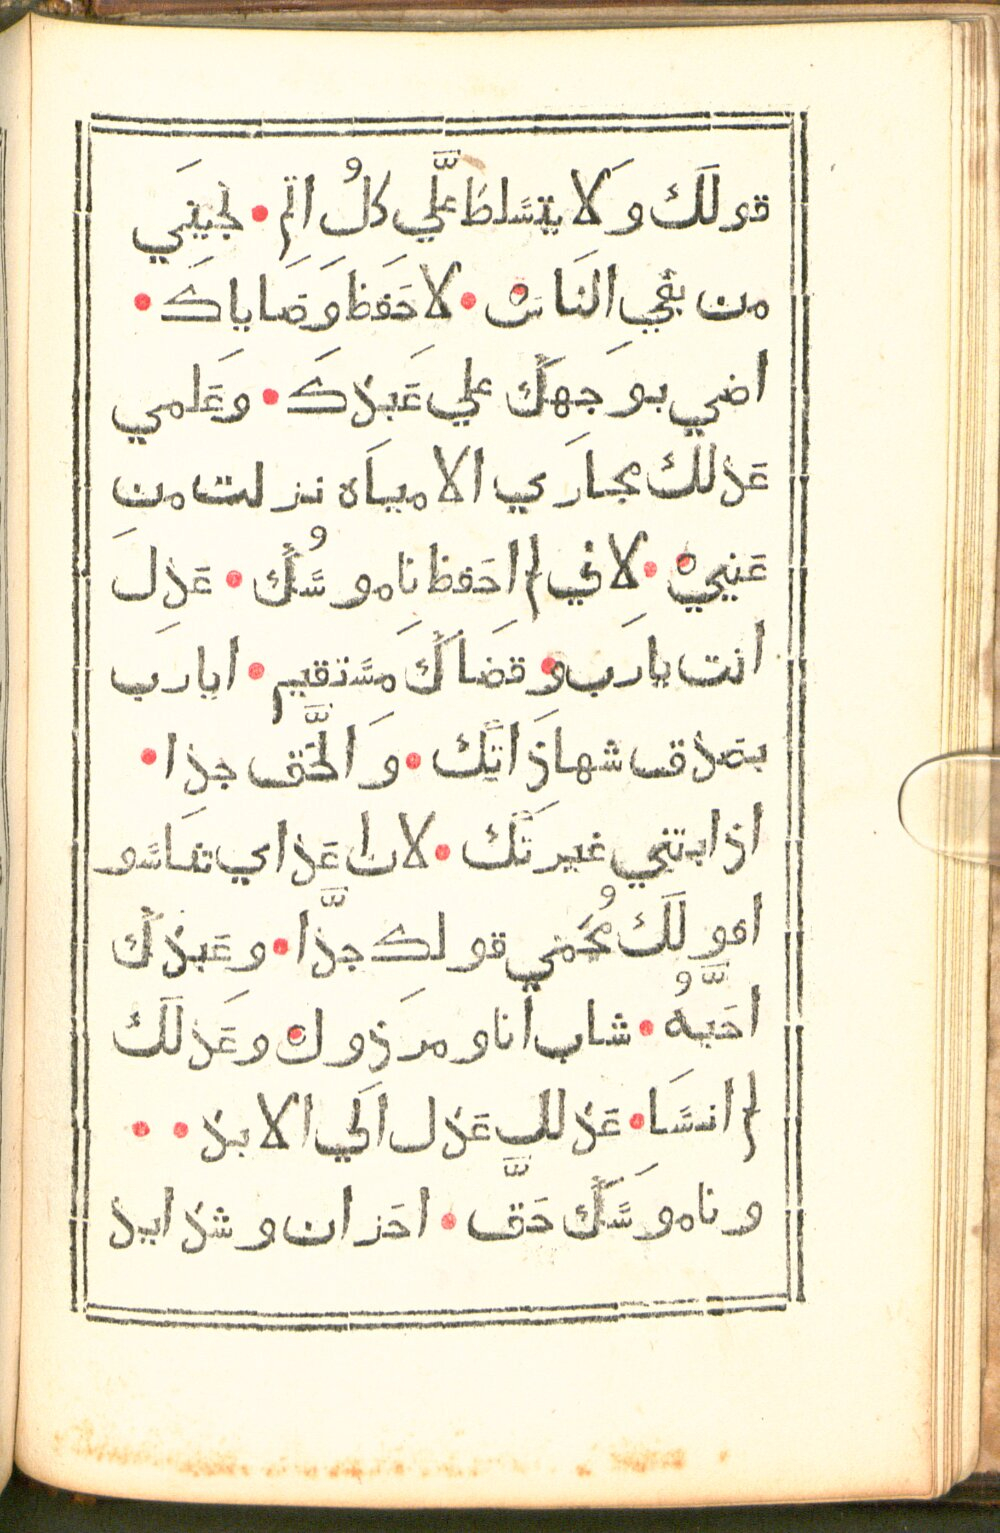 قولَك وَلا يتسَلط علَّي كلُ اثم • نجيني
من بقي الناس • لاحَفظ وَصَاياكَ •
اضي بوَجهَك علي عَبدكَ • وعَلمي
عَدلك مجارَي الامياَه نزلت من
عَنيي • لاني لم احَفظ ناموسُك • عَدلَ
انت يارَب وقضَاك مَستقيم • ايارَب
بصَدق شهادَاتك • وَالحَّق جدا •
اذابتني غيرتَك • لان اعَداي تناسَو
اقولَك مُحَمي قولك جدَّا • وعَبدَك
احَبَّهُ • شاب أنا ومرَذول وعَدلَك
لم انسَا • عَدلك عَدل الَي الابد • •
وناموسَك حَقَّ • احَزان وشدايد